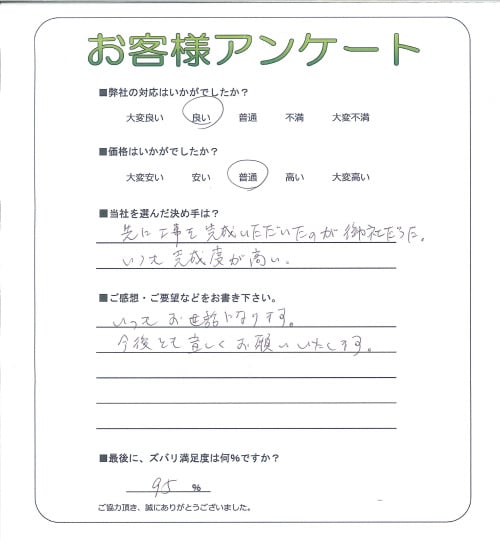 お客様アンケート
■弊社の対応はいかがでしたか？
大変良い 良い 普通 不満 大変不満
■価格はいかがでしたか？
大変安い 安い 普通 高い 大変高い
■当社を選んだ決め手は？
先に工事を完成いただいたのが御社だった。
いつも完成度が高い。
■ご感想・ご要望などをお書き下さい。
いつもお世話になります。
今後とも宜しくお願いいたします。
■最後に、ズバリ満足度は何％ですか？
95 ％
ご協力頂き、誠にありがとうございました。